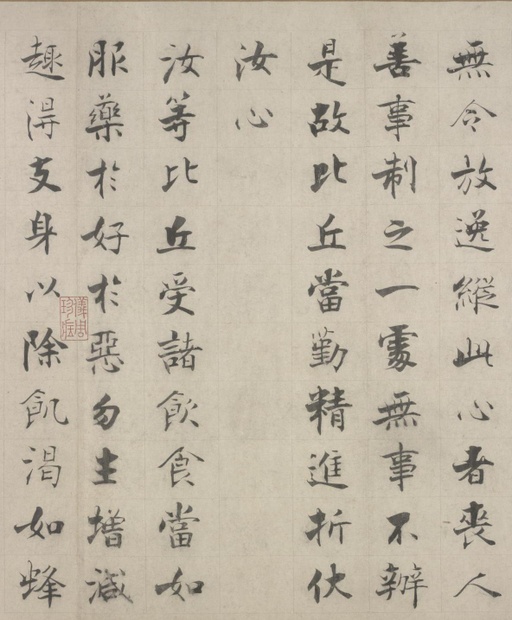 無令放逸縱此心者喪人
善事制之一處無事不辦
是故比丘當勤精進折伏
汝心
汝等比丘受諸飲食當如
服藥於好於惡勿生增減
趣得支身以除飢渴如蜂